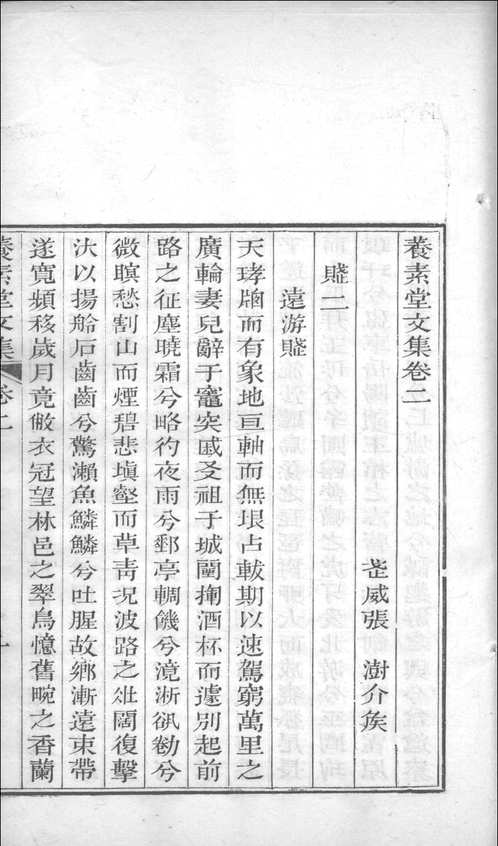 養素堂文集卷二
武威張　澍介矦
賦二
遠游賦
天㻞牖而有象地亘軸而無垠占軷期以速駕窮萬里之
廣輪妻兒辭于竈突戚友祖于城闉掬酒杯而遽別起前
路之征塵曉霜兮略彴夜雨兮郵亭輖饑兮滰淅 勧兮
微瞑愁割山而煙碧悲塡壑而草靑況波路之 闊復擊
汏以揚舲石齒齒兮驚瀨魚鱗鱗兮吐腥故鄉漸遠束帶
遂寬頻移歲月竟敝衣冠望林邑之翠鳥憶舊畹之香蘭
養素堂文集　卷二　一